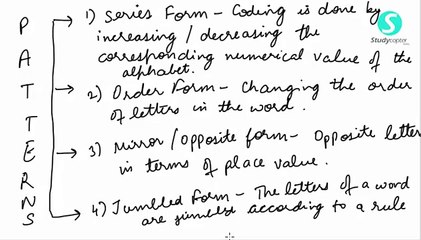 PATTERNS
1) Series Form - Coding is done by
increasing / decreasing the
corresponding numerical value of the
alphabet.
2) Order Form - Changing the order
of letters in the word.
3) Mirror / Opposite form - Opposite letter
in terms of place value.
4) Jumbled Form - The letters of a word
are jumbled according to a rule
S
Studycopter